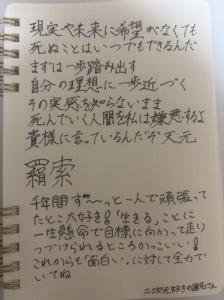 現実や未来に希望がなくても
死ぬことはいつでもできるんだ
まずは一歩踏み出す
自分の理想に一歩近づく
その実感を知らないまま
死んでいく人間を私は嫌悪するよ
貴様に言っているんだぞ天元
羂索
千年間ず〜っと一人で頑張って
たところ大好き!「生きる」ことに
一生懸命で目標に向かって走り
つづけられるところかっこいい!
これからも「面白い」に対して全力で
いてね
二次元好きの さん